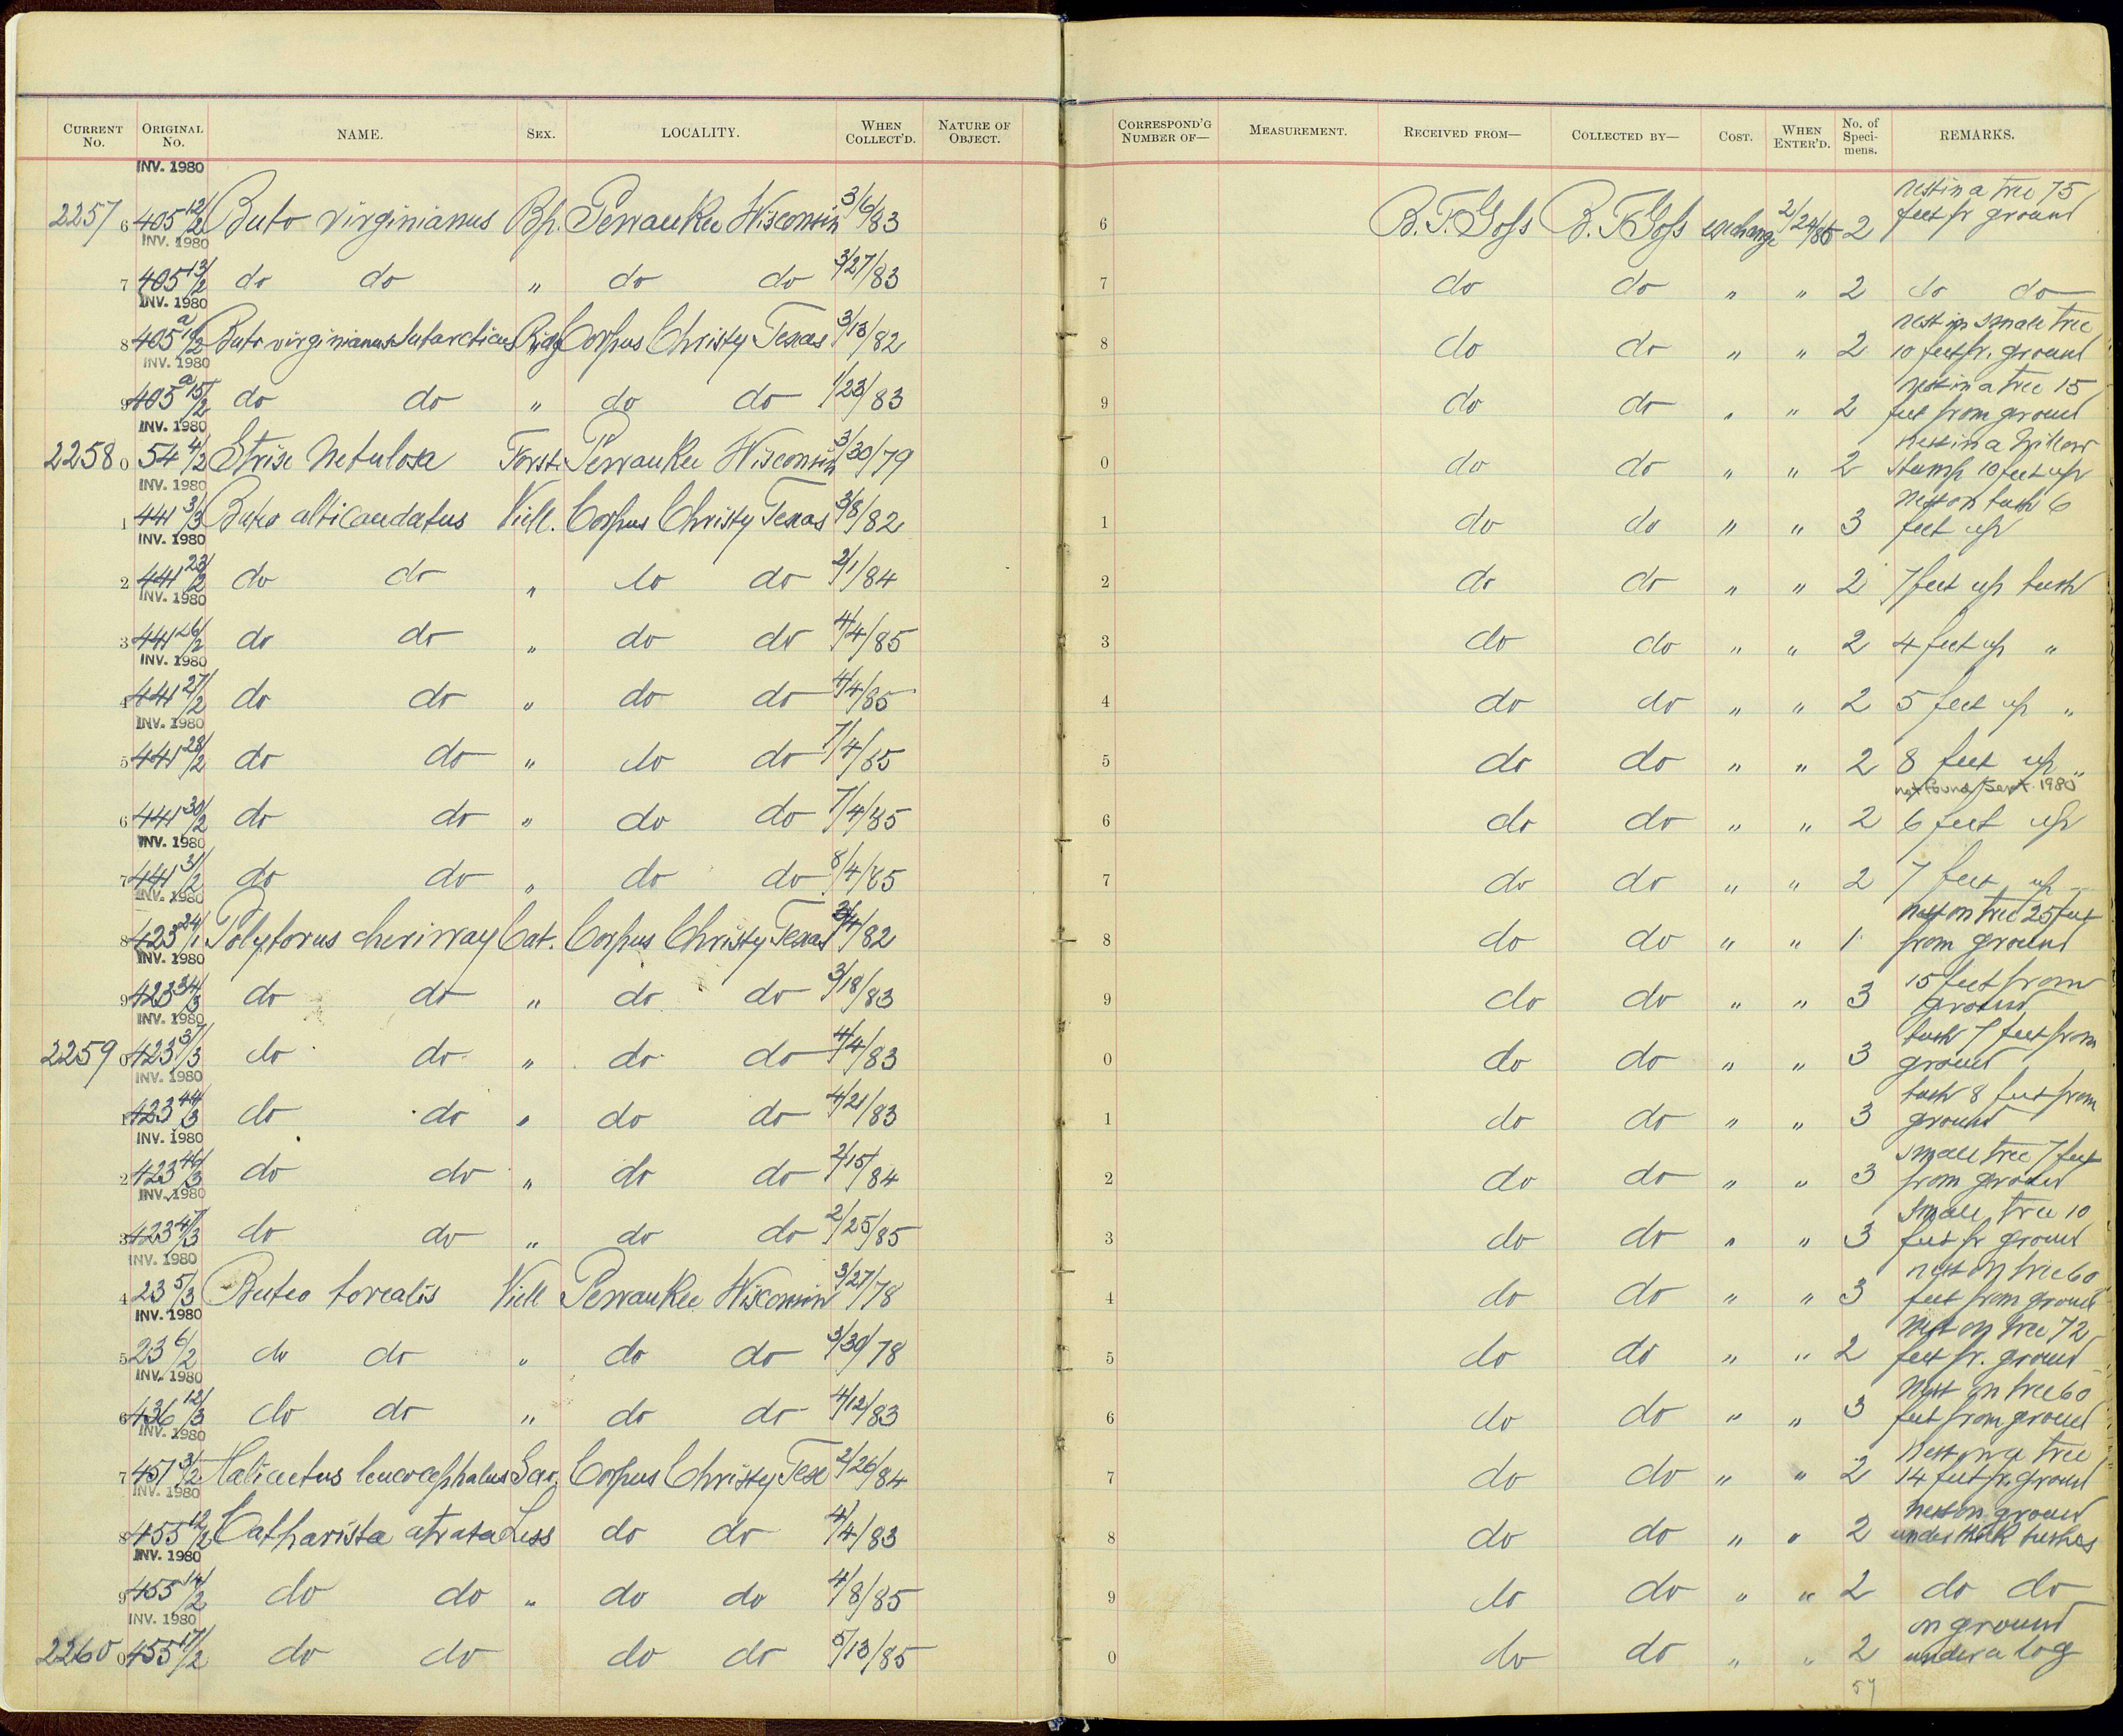 CURRENT No. ORIGINAL No. NAME. SEX. LOCALITY. WHEN COLLECT'D. NATURE OF OBJECT. CORRESPOND'G NUMBER OF— MEASUREMENT. RECEIVED FROM— COLLECTED BY— COST. WHEN ENTER'D. No. of Specimens. REMARKS.
INV. 1980
nest in a tree 75
2257 6 405 12/2 Buto virginianus Bp. Pewaukee Wisconsin 3/6/83 6 B. F. Goss B. F. Goss exchange 2/24/85 2 feet fr ground
INV. 1980
7 405 13/2 do do " do do 3/27/83 7 do do " " 2 do do
INV. 1980
nest in small tree
8 405a Buto virginianus subarcticus Ridg Corpus Christy Texas 3/13/82 8 do do " " 2 10 feet fr. ground
INV. 1980
nest in a tree 15
9 405a 15/2 do do " do do 1/23/83 9 do do " " 2 feet from ground
INV. 1980
nest in a willow
2258 0 54 4/2 Strix nebulosa Forst. Pewaukee Wisconsin 3/30/79 0 do do " " 2 stump 10 feet up
INV. 1980
nest on bush 6
1 441 3/3 Buteo albicaudatus Viell. Corpus Christy Texas 3/8/82 1 do do " " 3 feet up
INV. 1980
2 441 23/2 do do " do do 2/1/84 2 do do " " 2 7 feet up bush
INV. 1980
3 441 26/2 do do " do do 4/4/85 3 do do " " 2 4 feet up "
INV. 1980
4 441 27/2 do do " do do 4/4/85 4 do do " " 2 5 feet up "
INV. 1980
5 441 28/2 do do " do do 7/4/85 5 do do " " 2 8 feet up "
not found Sept. 1980
6 441 30/2 do do " do do 7/4/85 6 do do " " 2 6 feet up
INV. 1980
7 441 31/2 do do " do do 8/4/85 7 do do " " 2 7 feet up
INV. 1980
nest on tree 25 feet
8 423 24/1 Polyborus cheriway Cat. Corpus Christy Texas 4/82 8 do do " " 1 from ground
INV. 1980
15 feet from
9 423 34/3 do do " do do 3/18/83 9 do do " " 3 ground
INV. 1980
bush 7 feet from
2259 0 423 37/3 do do " do do 4/4/83 0 do do " " 3 ground
INV. 1980
bush 8 feet from
1 423 44/3 do do " do do 4/21/83 1 do do " " 3 ground
INV. 1980
small tree 7 feet
2 423 46/3 do do " do do 2/15/84 2 do do " " 3 from ground
INV. 1980
small tree 10
3 423 47/3 do do " do do 2/25/85 3 do do " " 3 feet fr ground
INV. 1980
nest on tree 60
4 23 5/3 Buteo borealis Viell Pewaukee Wisconsin 3/27/78 4 do do " " 3 feet from ground
INV. 1980
nest on tree 72
5 23 6/2 do do " do do 3/30/78 5 do do " " 2 feet fr. ground
INV. 1980
nest on tree 60
6 436 12/3 do do " do do 4/12/83 6 do do " " 3 feet from ground
INV. 1980
nest on a tree
7 451 3/2 Haliaetus leucocephalus Sav. Corpus Christy Tex 2/26/84 7 do do " " 2 14 feet fr. ground
INV. 1980
nest on ground
8 455 12/2 Catharista atrata Less do do 4/4/83 8 do do " " 2 under thick bushes
INV. 1980
9 455 14/2 do do " do do 4/8/85 9 do do " " 2 do do
INV. 1980
on ground
2260 0 455 17/2 do do do do 5/13/85 0 do do " " 2 under a log
57